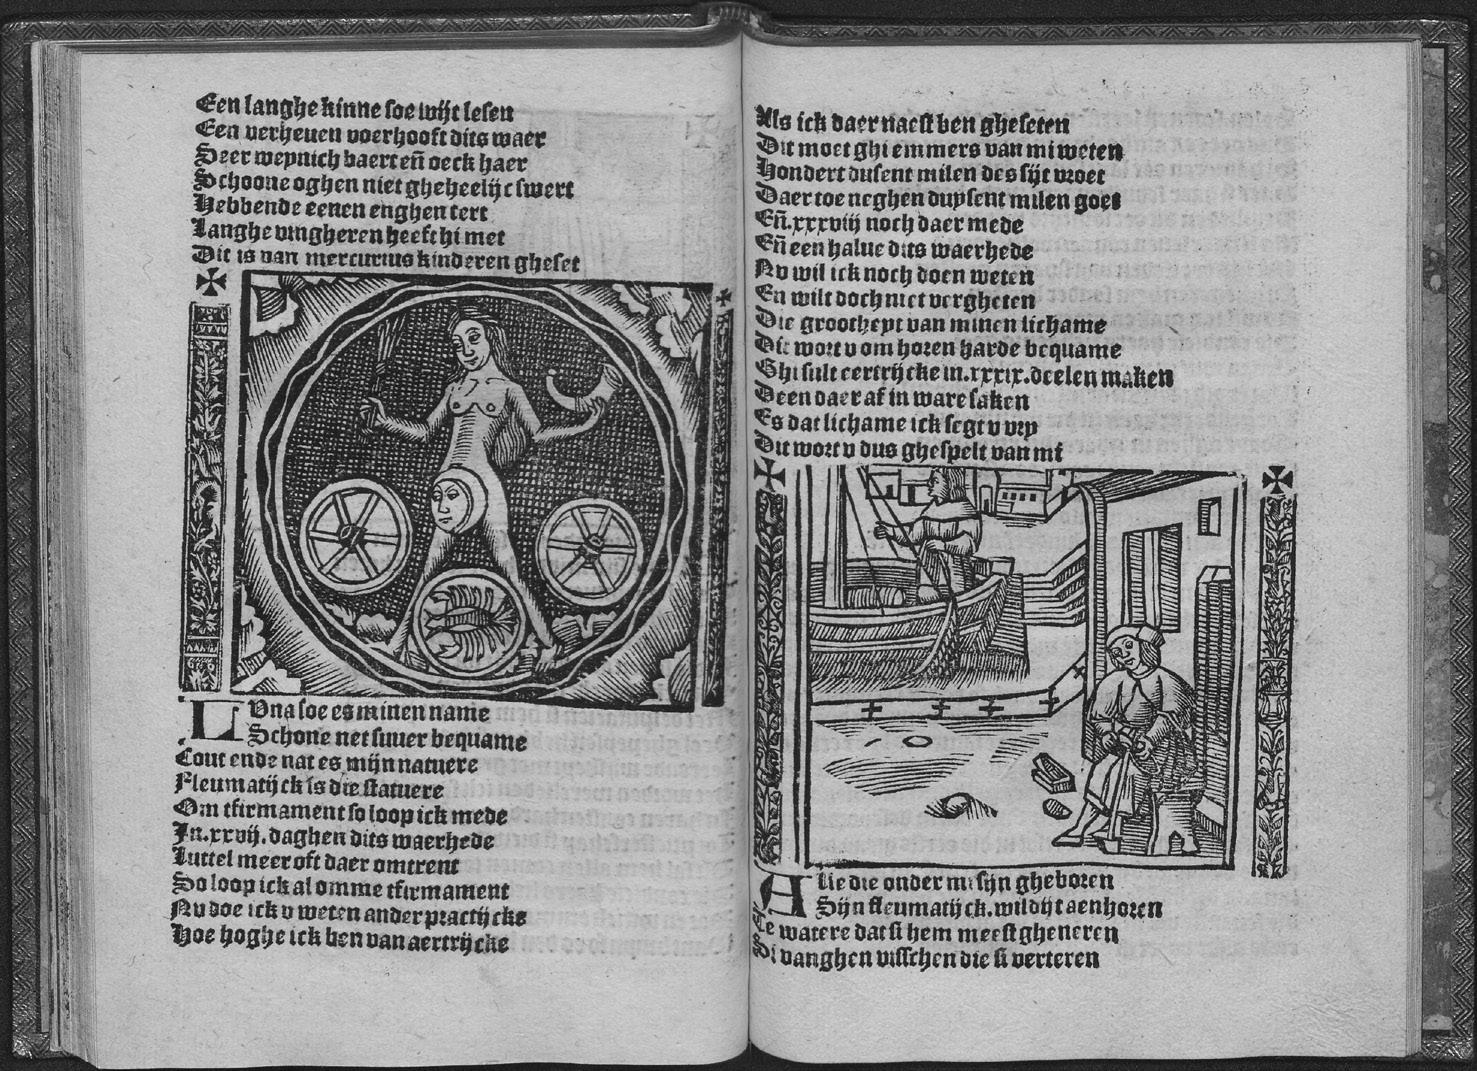 Een langhe kinne soe wijt lesen
Een verheven voerhooft dits waer
Seer weynich baert eñ oeck haer
Schoone oghen niet gheheelijc swert
Hebbende eenen enghen tert
Langhe vingheren heeft hi met
Dit is van mercurius kinderen gheset
LUna soe es minen name
Schone net suver bequame
Cout ende nat es mijn natuere
Fleumatijck is die statuere
Om tfirmament so loop ick mede
In .xxvij. daghen dits waerhede
Luttel meer oft daer omtrent
So loop ick al omme tfirmament
Nu doe ick v weten ander practijcke
Hoe hoghe ick ben van aertrijcke
Als ick daer naest ben gheseten
Dit moet ghi emmers van mi weten
Hondert dusent milen des sijt vroet
Daer toe neghen duysent milen goet
Eñ .xxxviij noch daer mede
Eñ een halue dits waerhede
Nv wil ick noch doen weten
En wilt doch niet vergheten
Die grootheyt van minen lichame
Dit wort v om horen harde bequame
Ghi sult eertrijcke in .xxxix. deelen maken
Deen daer af in ware saken
Es dat lichame ick segt v vry
Dit wort v dus ghespelt van mi
Alle die onder mi sijn gheboren
Sijn fleumatijck. wildijt aenhoren
Te watere dat si hem meest gheneren
Si vanghen visschen die si verteren